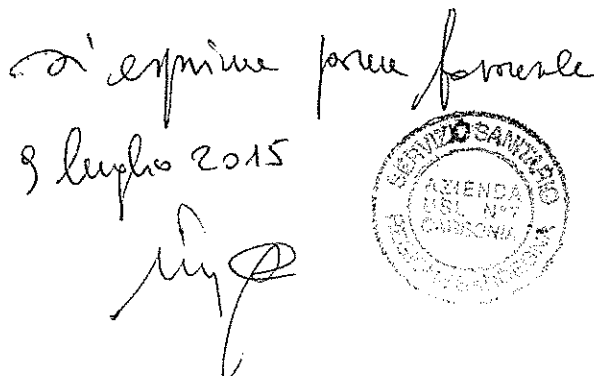 si esprime parere favorevole
9 luglio 2015
SERVIZIO SANITARIO
AZIENDA
USL N°7
CARBONIA
REGIONE SARDEGNA